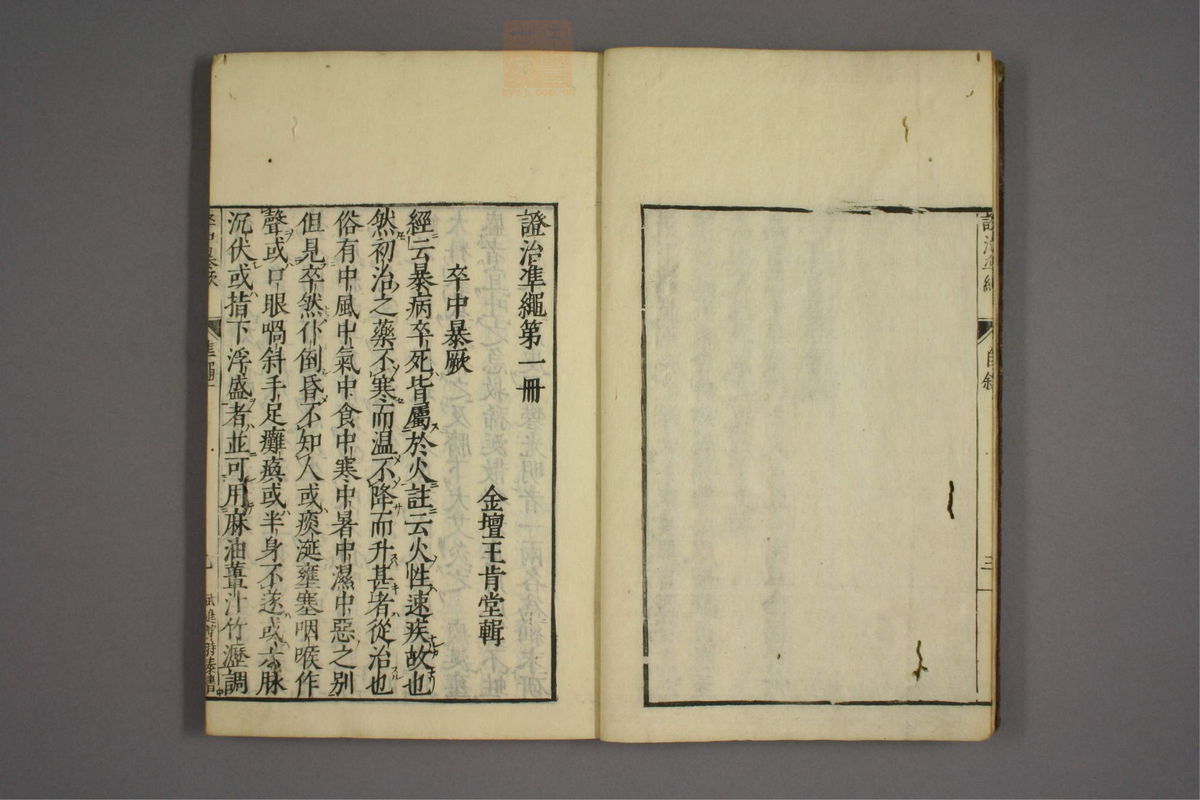 證治準繩
自敘
三
證治準繩第一冊
金壇王肯堂輯
卒中暴厥
經云暴病卒死皆屬於火註云火性速疾故也
然初治之藥不寒而温不降而升甚者從治也
俗有中風中氣中食中寒中暑中濕中惡之別
但見卒然仆倒昏不知人或痰涎壅塞咽喉作
聲或口眼喎斜手足癱瘓或半身不遂或六脉
沉伏或指下浮盛者並可用麻油薑汁竹瀝調